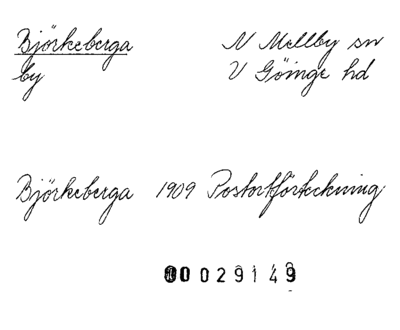 Björkeberga N Mellby sn
by V Göinge hd
Björkeberga 1909 Postortförteckning
00029149